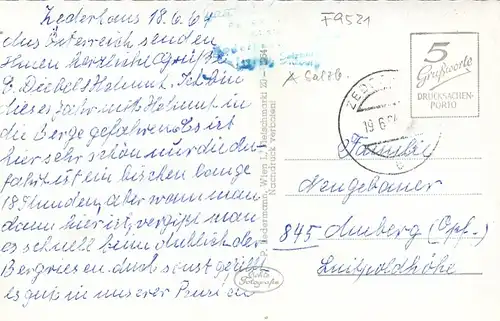 Zederhaus 18.6.64
Aus Österreich senden
Ihnen herzliche Grüße
E. Diebels Helmut. Ich bin
dieses Jahr mit Helmut in
die Berge gefahren. Es ist
hier sehr schön nur die An-
fahrt ist ein bischen lange
18 Stunden, aber wenn man
dann hier ist, vergißt man
es schnell beim Anblick der
Bergriesen. Auch sonst gefällt
es gut in unserer
F9521
Salzb.
5
Grußworte
DRUCKSACHEN-
PORTO
19.6.64
P. Ledermann, Wien I., Fleischmarkt 20
Nachdruck verboten!
Echte
Fotografie
Familie
Neugebauer
845 Amberg (Opf.)
Luitpoldhöhe